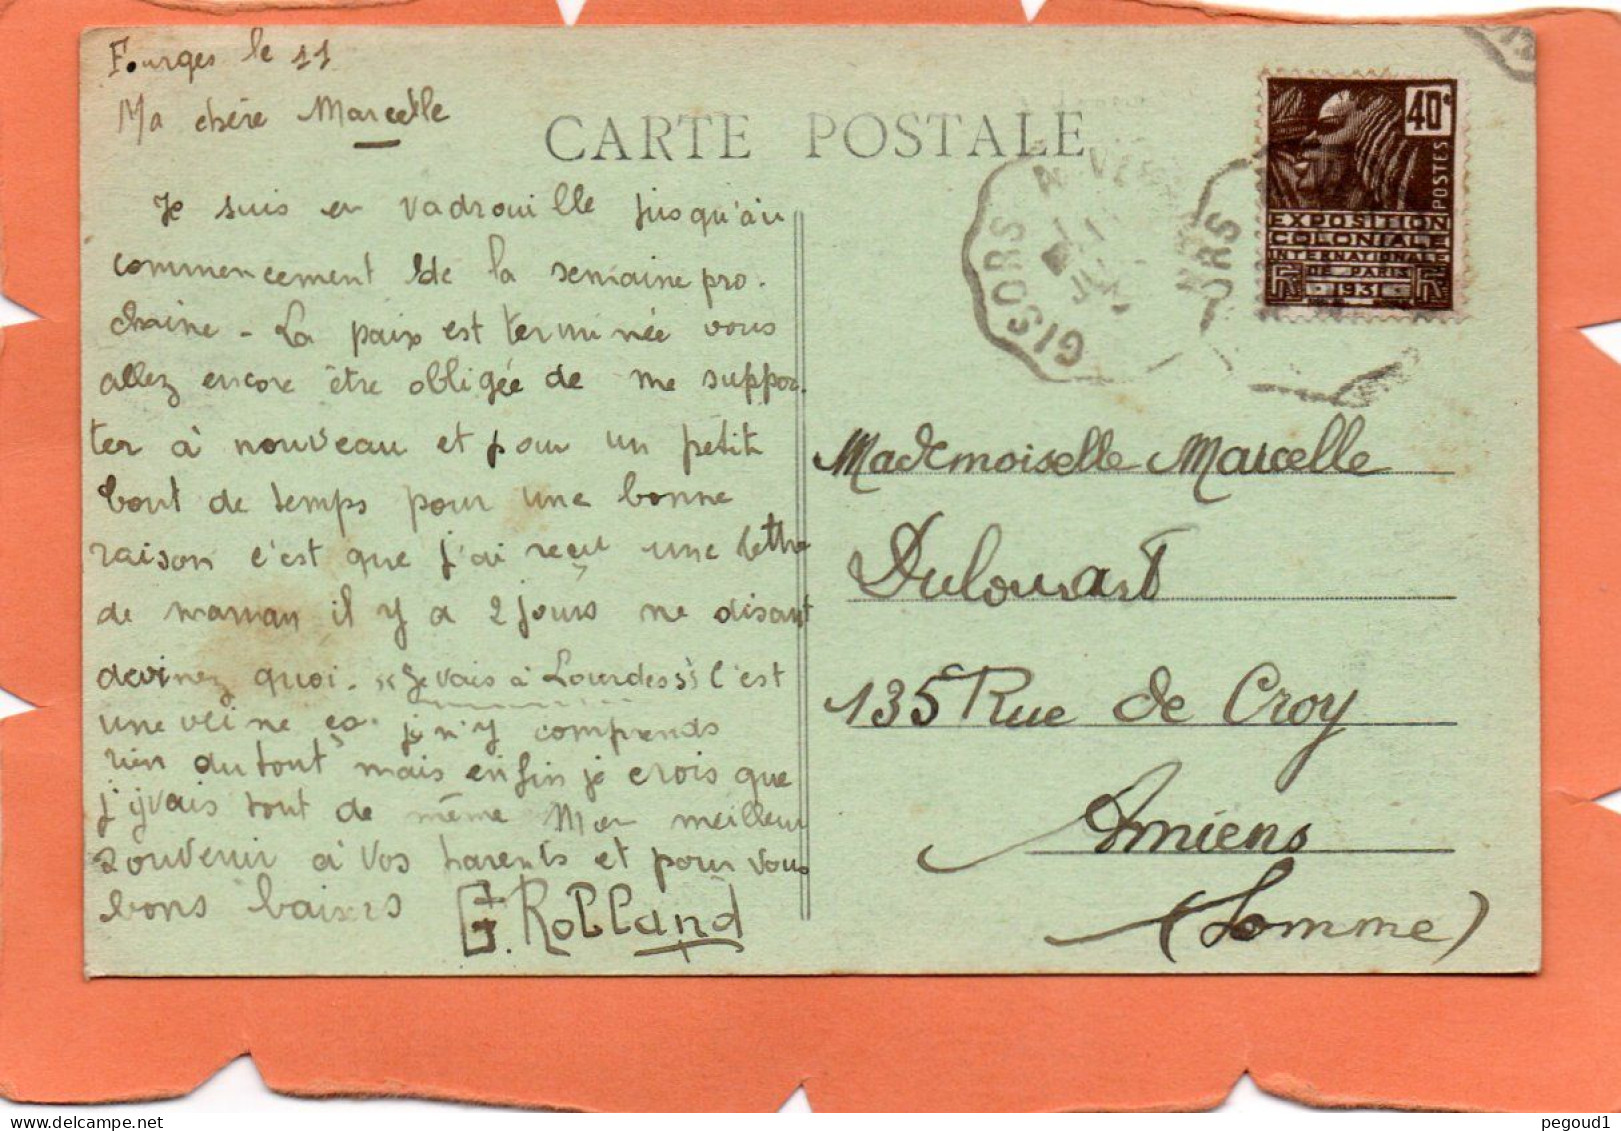 Fourges le 11
Ma chère Marcelle
Je suis en vadrouille jusqu'au
commencement de la semaine pro-
chaine - La paix est terminée vous
allez encore être obligée de me suppor-
ter à nouveau et pour un petit
bout de temps pour une bonne
raison c'est que j'ai reçu une lettre
de maman il y a 2 jours me disant
devinez quoi. "Je vais à Lourdes" c'est
une veine ça. je n'y comprends
rien du tout mais enfin je crois que
j'y vais tout de même Mon meilleur
souvenir à vos parents et pour vous
bons baisers
G. Rolland
CARTE POSTALE
GISORS A VER
URS
40c
POSTES
EXPOSITION
COLONIALE
INTERNATIONALE
DE PARIS
1931
RF
RF
Mademoiselle Marcelle
Dulouart
135 Rue de Croy
Amiens
(Somme)
pegoud1